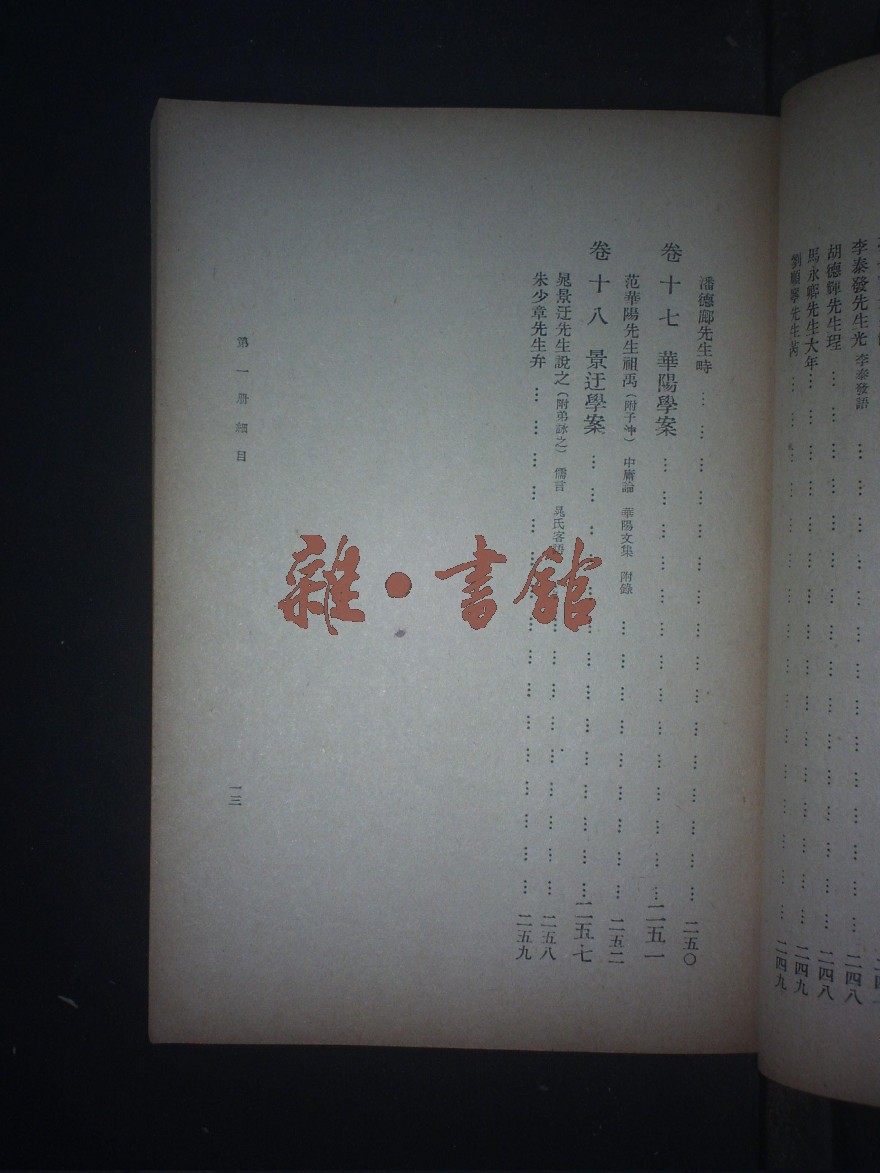 李泰發先生光 李泰發語 … … … … … … … … 二四八
胡德輝先生珵 … … … … … … … … … … 二四八
馬永卿先生大年 … … … … … … … … … … 二四九
劉順寧先生芮 … … … … … … … … … … 二四九
潘德鄜先生畤 … … … … … … … … … … … … … … 二五〇
卷十七 華陽學案 … … … … … … … … … … … … 二五一
范華陽先生祖禹(附子沖) 中庸論 華陽文集 附錄 … … … … … … … … 二五二
卷十八 景迂學案 … … … … … … … … … … … … 二五七
晁景迂先生說之(附弟詠之) 儒言 晁氏客語 … … … … … … … … 二五八
朱少章先生弁 … … … … … … … … … … … … … … 二五九
第一册細目
一三
雜·書館